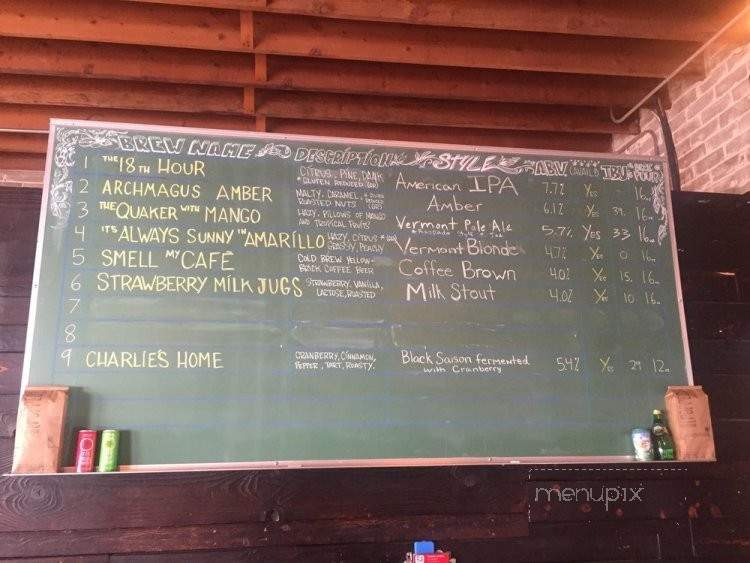 BREW NAME DESCRIPTION STYLE ABV IBU POUR
1 THE 18TH HOUR CITRUS, PINE, DANK American IPA 7.7% Yes 16
GLUTEN REDUCED
2 ARCHMAGUS AMBER MALTY, CARAMEL, Amber 6.1% Yes 16
ROASTED NUTS
3 THE QUAKER WITH MANGO HAZY, PILLOWS OF MANGO Vermont Pale Ale 5.7% Yes 33 16
AND TROPICAL FRUITS
4 IT'S ALWAYS SUNNY IN AMARILLO HAZY, CITRUS Vermont Blonde 4.7% Yes 0 16
GRASSY, PEACHY
5 SMELL MY CAFÉ COLD BREW YELLOW- Coffee Brown 4.0% Yes 15 16
BRICK COFFEE BEER
6 STRAWBERRY MILK JUGS STRAWBERRY, VANILLA, Milk Stout 4.0% Yes 10 16
LACTOSE, ROASTED
7
8
9 CHARLIE'S HOME CRANBERRY, CINNAMON, Black Saison fermented 5.4% Yes 29 12
PEPPER, TART, ROASTY. with Cranberry
menupix